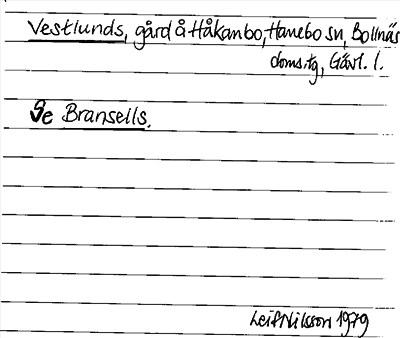 Vestlunds, gård å Håkanbo, Hanebo sn, Bollnäs
doms.tg, Gävl. l.
Se Bransells.
Leif Nilsson 1979